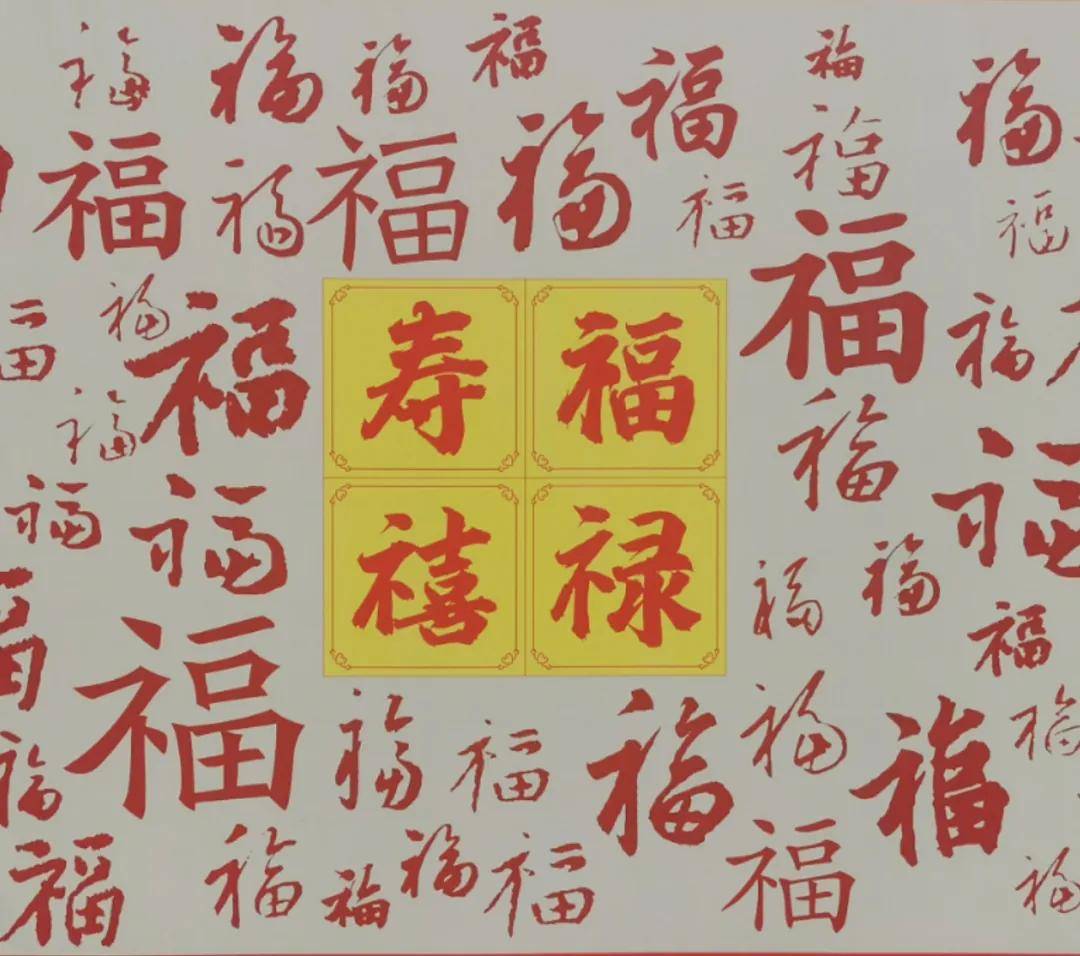 福 福 福 福 福 福 福
福 福 福 福 福 福 福
福 福 福 寿 福 福 福
福 福
福 福 禧 禄 福
福 福 福
福 福 福 福 福 福 福 福
福
福 福 福 福 福 福 福